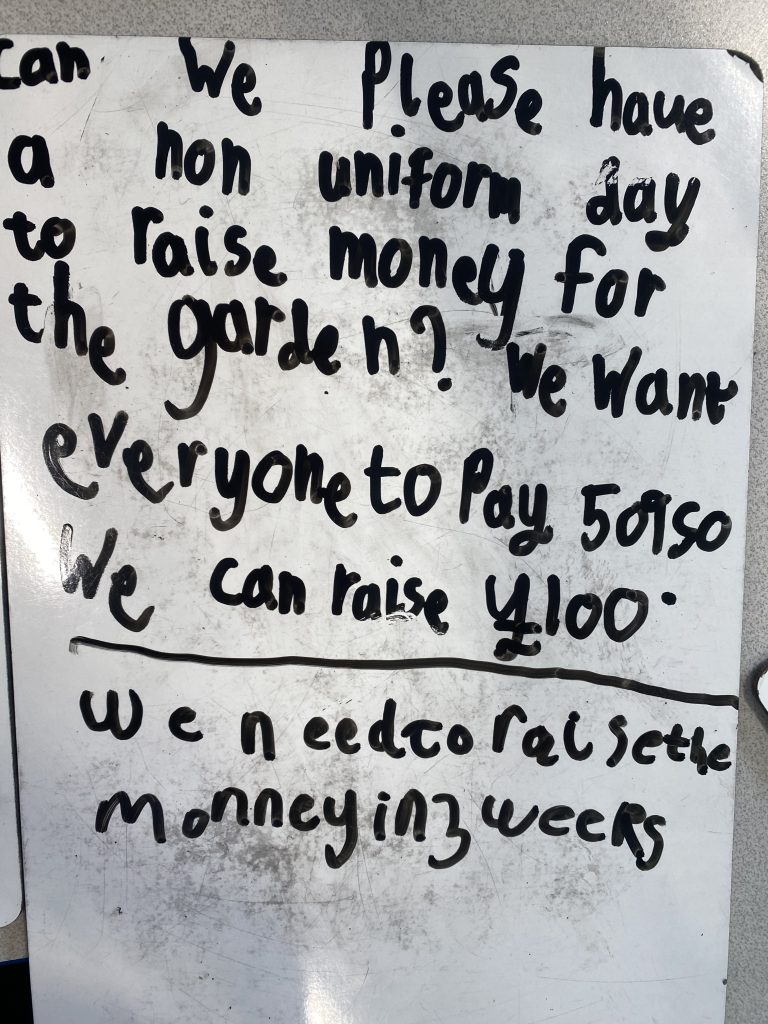 can We Please have
a non uniform day
to raise money for
the garden? We Want
everyone to Pay 50p so
We can raise £100.
We need to raise the
monney in 3 weeks